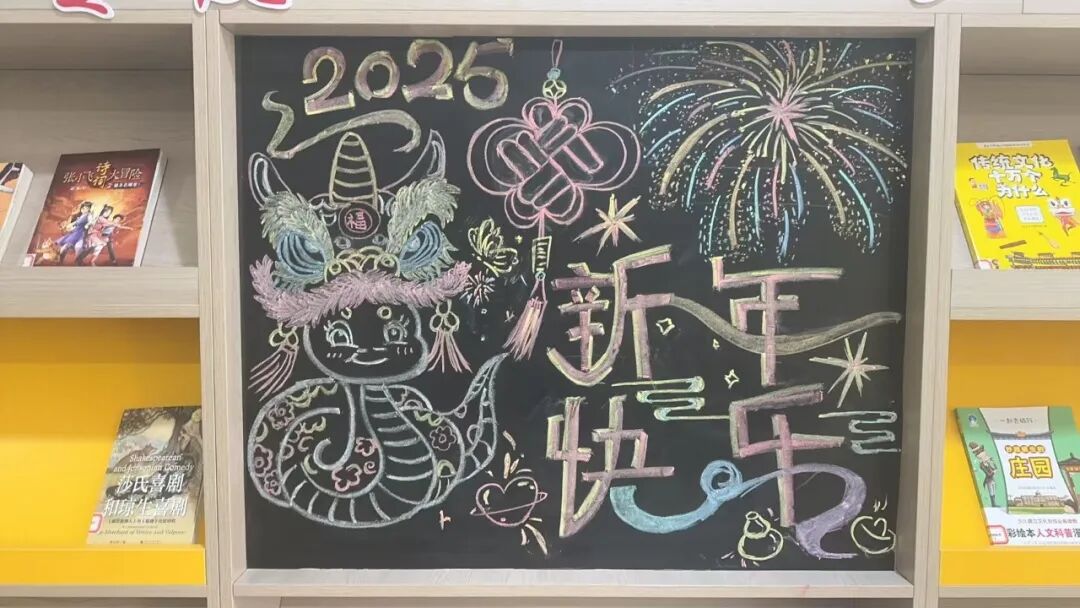 2025
福
新年
快乐
张小飞诗词大冒险
传统文化
十万个
为什么
Shakespearean
and Jonsonian Comedy
莎氏喜剧
和琼生喜剧
庄园
彩绘本人文科普